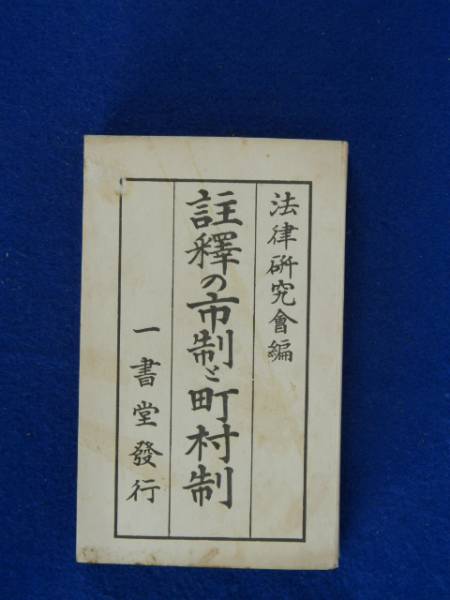 法律硏究會編
註釋の市制と町村制
一書堂發行